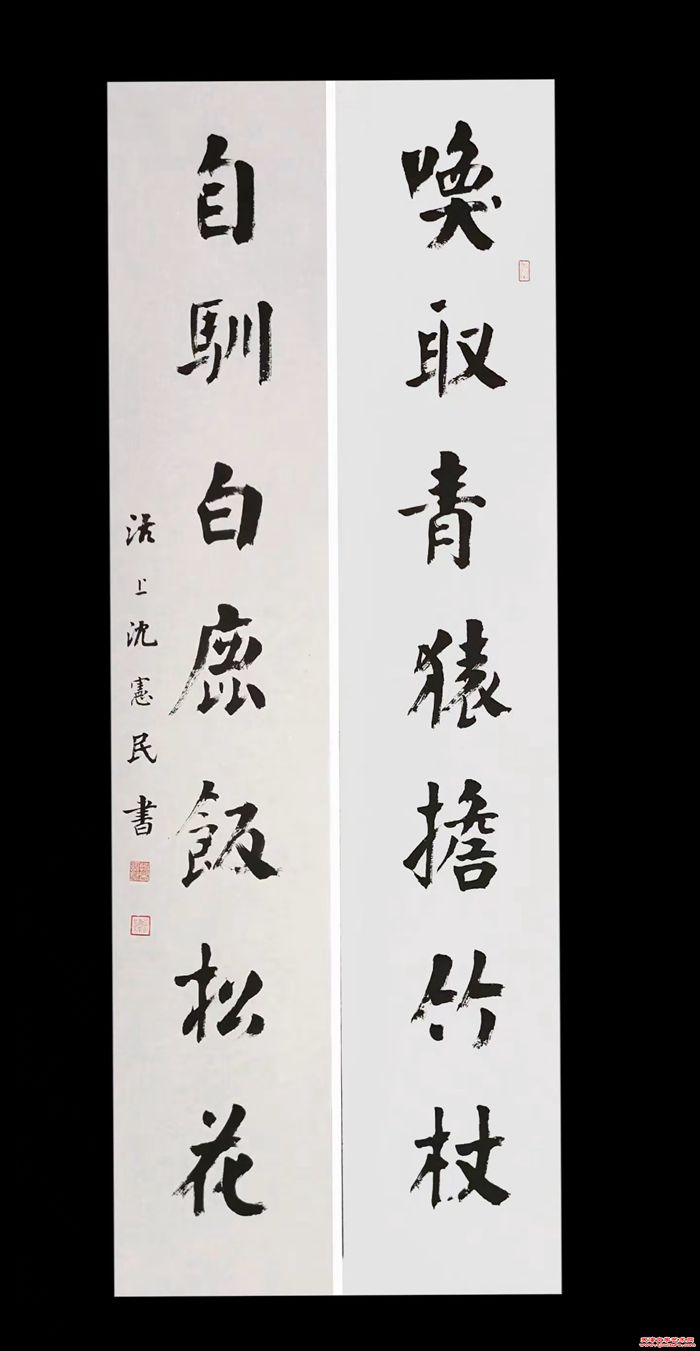 喚取青猿擔竹杖
自馴白鹿飯松花
沽上沈憲民書